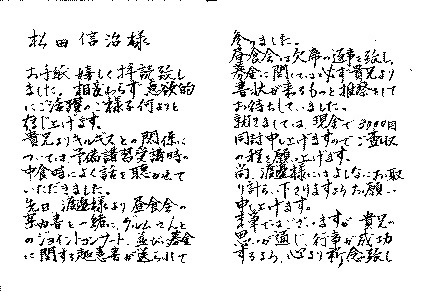 松田信治様
お手紙嬉しく拝読致し
ました。相変わらず意欲的
にご活躍のご様子何よりと
存じ上げます。
貴兄よりキルギスとの関係に
ついては予備講習受講時の
中食時によく話を聴かせて
いただきました。
先日、渡邊様より昼食会の
案内書と一緒に、グルムさんと
のジョイントコンサート、並び、基金
に関する趣意書が送られて
参りました。
昼食会は欠席の返事を致し、
基金に関しては必ず貴兄より
書状が来るものと推察をして
お待ちしていました。
就きましては、現金で3,000円
同封申し上げますのでご査収
の程を願い上げます。
尚、渡邊様によきしなにお取
り計らい下さりますようお願い
申し上げます。
末筆ではございますが、貴兄の
思いが通じ、行事が成功
するよう、心より祈念致し